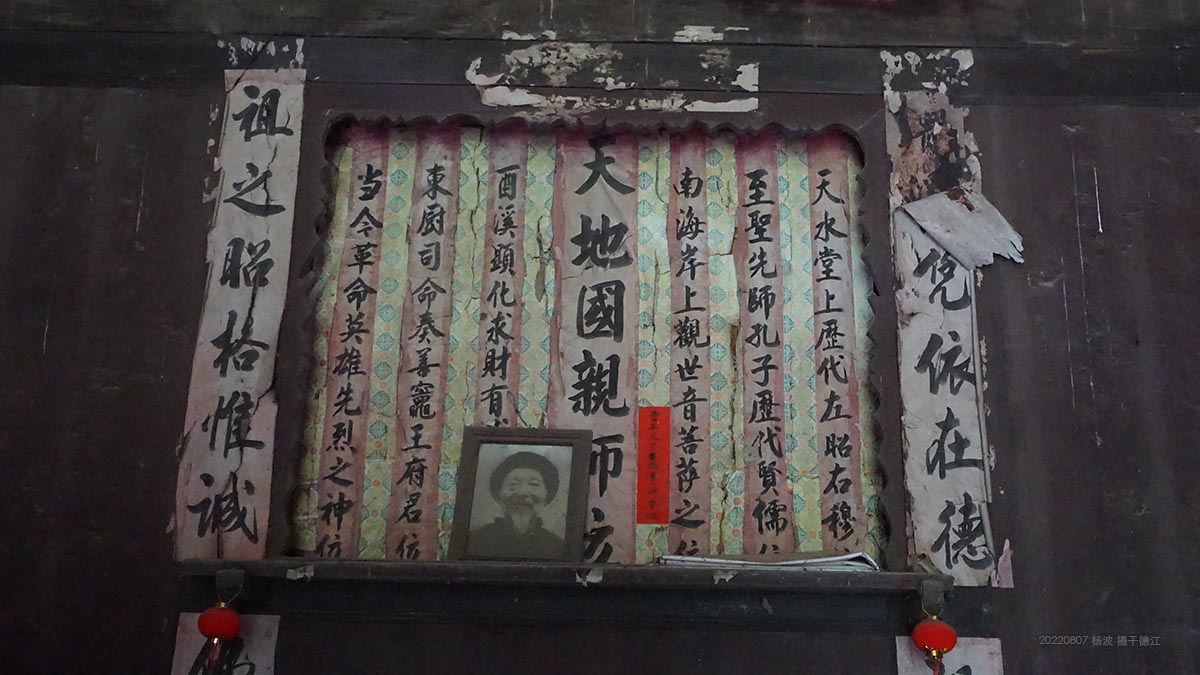 凭依在德
天水堂上歷代左昭右穆
至聖先師孔子歷代賢儒位
南海岸上觀世音菩薩之位
天地國親師位
酉溪頭化求財有
東廚司命奏善竈王府君位
当令革命英雄先烈之神位
祖之昭格惟誠
20220807 杨波 摄于德江